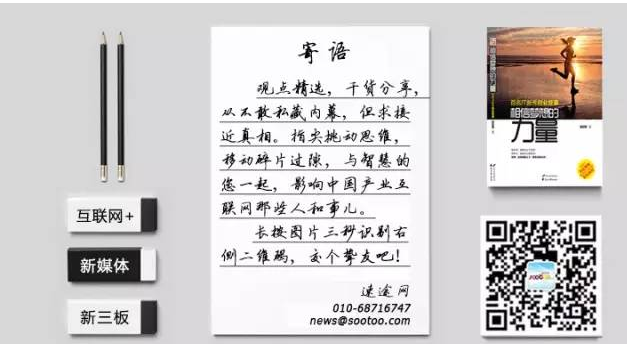 互联网+
新媒体
新三板
寄语
观点精选,干货分享,
从不敢私藏内幕,但求接
近真相。指尖挑动思维,
移动碎片过隙,与智慧的
您一起,影响中国产业互
联网那些人和事儿。
长按图片三秒识别右
侧二维码,交个挚友吧!
速途网
010-68716747
news@sootoo.com
相信梦想的
力量